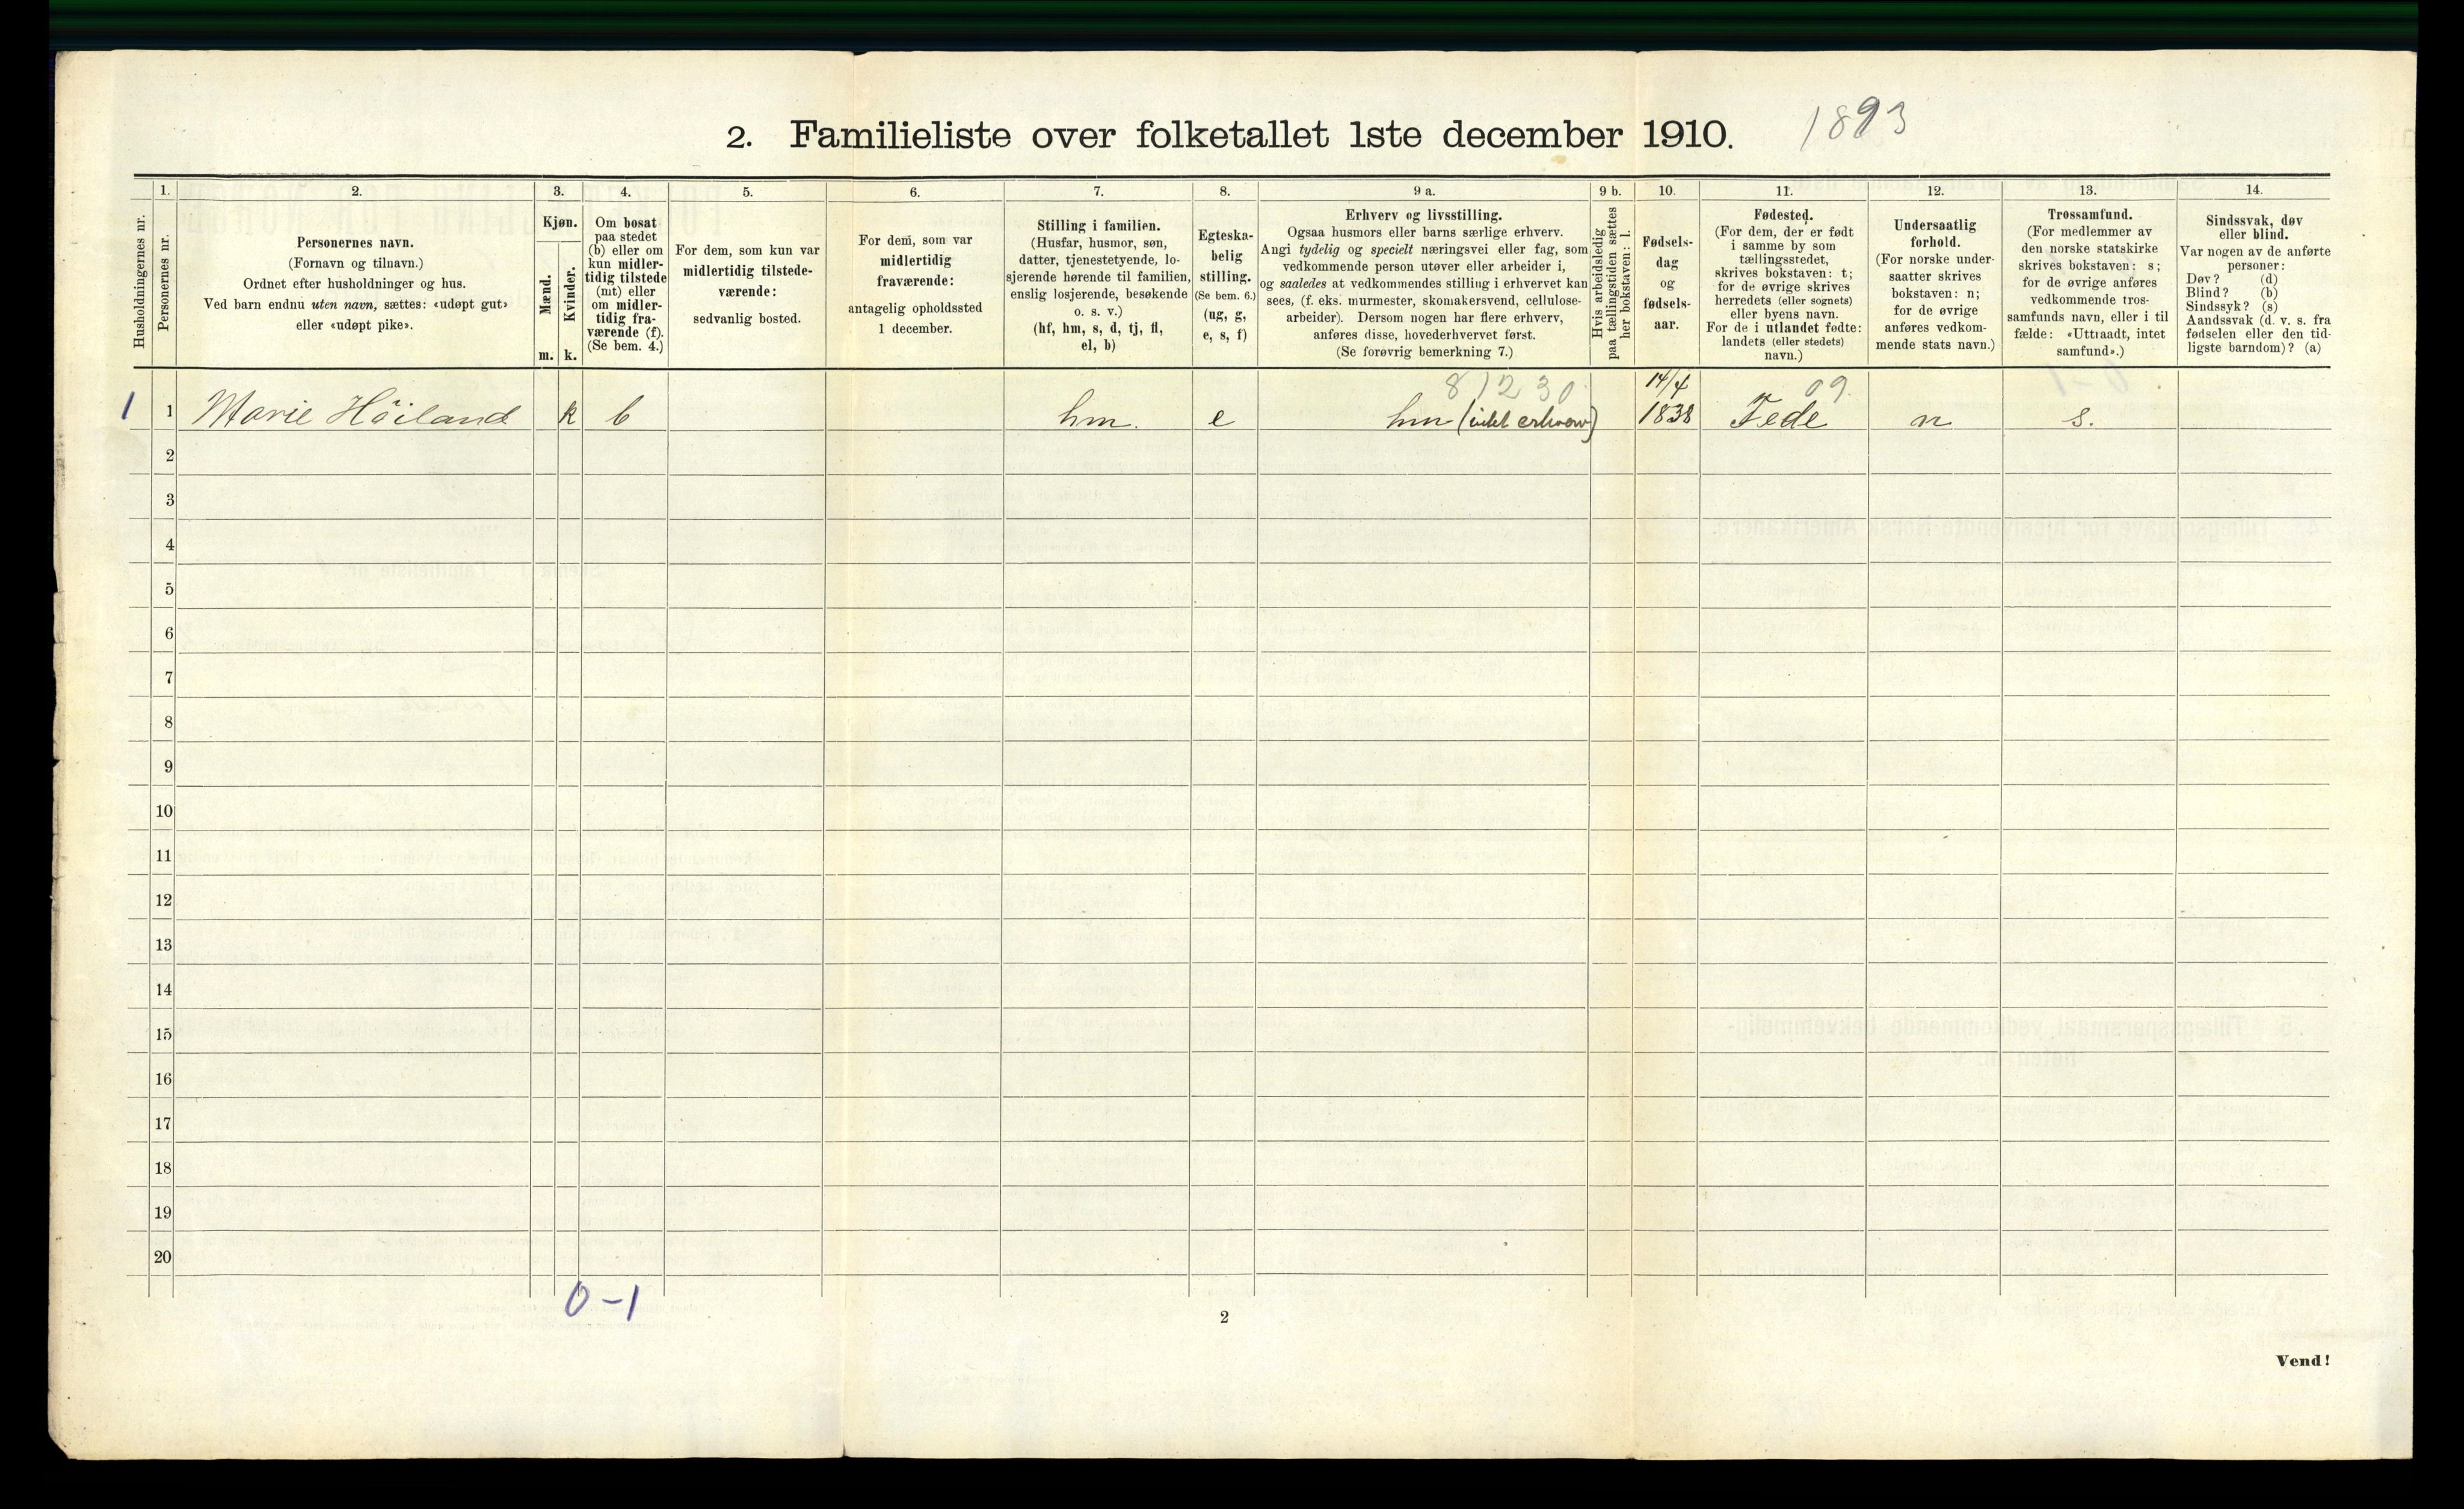 2. Familieliste over folketallet 1ste december 1910. 1893
Husholdningernes nr.
1.
Personernes nr.
2.
Personernes navn.
(Fornavn og tilnavn.)
Ordnet efter husholdninger og hus.
Ved barn endnu uten navn, sættes: «udøpt gut»
eller «udøpt pike».
3.
Kjøn.
Mænd.
m.
Kvinder.
k.
4.
Om bosat
paa stedet
(b) eller om
kun midler-
tidig tilstede
(mt) eller
om midler-
tidig fra-
værende (f).
(Se bem. 4.)
5.
For dem, som kun var
midlertidig tilstede-
værende:
sedvanlig bosted.
6.
For dem, som var
midlertidig
fraværende:
antagelig opholdssted
1 december.
7.
Stilling i familien.
(Husfar, husmor, søn,
datter, tjenestetyende, lo-
sjerende hørende til familien,
enslig losjerende, besøkende
o. s. v.)
(hf, hm, s, d, tj, fl,
el, b)
8.
Egteska-
belig
stilling.
(Se bem. 6.)
(ug, g,
e, s, f)
9 a.
Erhverv og livsstilling.
Ogsaa husmors eller barns særlige erhverv.
Angi tydelig og specielt næringsvei eller fag, som
vedkommende person utøver eller arbeider i,
og saaledes at vedkommendes stilling i erhvervet kan
sees, (f. eks. murmester, skomakersvend, cellulose-
arbeider). Dersom nogen har flere erhverv,
anføres disse, hovederhvervet først.
(Se forøvrig bemerkning 7.)
9 b.
Hvis arbeidsledig
paa tællingstiden sættes
her bokstaven: l.
10.
Fødsels-
dag
og
fødsels-
aar.
11.
Fødested.
(For dem, der er født
i samme by som
tællingsstedet,
skrives bokstaven: t;
for de øvrige skrives
herredets (eller sognets)
eller byens navn.
For de i utlandet fødte:
landets (eller stedets)
navn.)
12.
Undersaatlig
forhold.
(For norske under-
saatter skrives
bokstaven: n;
for de øvrige
anføres vedkom-
mende stats navn.)
13.
Trossamfund.
(For medlemmer av
den norske statskirke
skrives bokstaven: s;
for de øvrige anføres
vedkommende tros-
samfunds navn, eller i til-
fælde: «Uttraadt, intet
samfund».)
14.
Sindssvak, døv
eller blind.
Var nogen av de anførte
personer:
Døv? (d)
Blind? (b)
Sindssyk? (s)
Aandssvak (d. v. s. fra
fødselen eller den tid-
ligste barndom)? (a)
81230 14/4 09.
1 1 Marie Höiland k b hm. e hm (intet erhverv) 1838 Fede n s.
2
3
4
5
6
7
8
9
10
11
12
13
14
15
16
17
18
19
20
0-1
2
Vend!